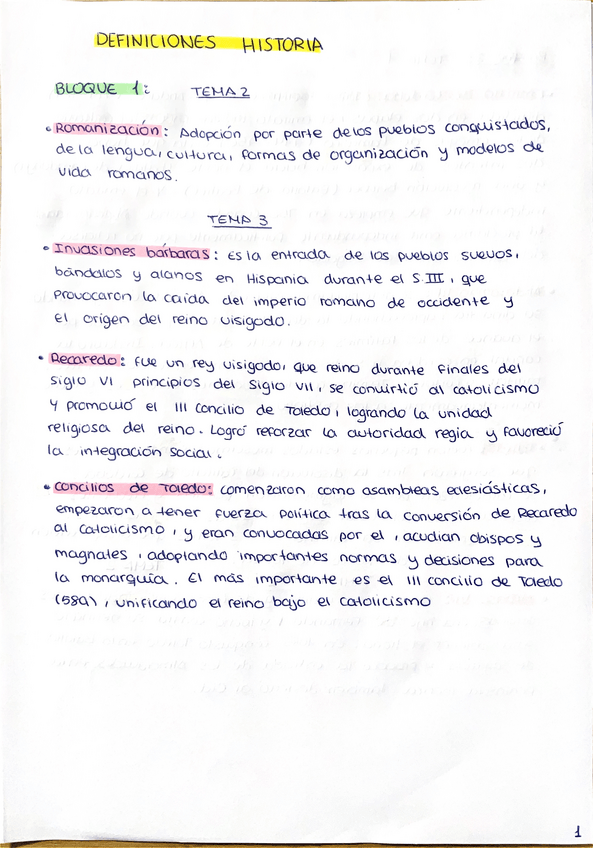 DEFINICIONES HISTORIA
BLOQUE 1: TEMA 2
• Romanización: Adopción por parte de los pueblos conquistados,
de la lengua, cultura, formas de organización y modelos de
vida romanos.
TEMA 3
• Invasiones bárbaras: Es la entrada de los pueblos suevos,
bándalos y alanos en Hispania durante el S.III, que
provocaron la caída del imperio romano de occidente y
el origen del reino visigodo.
• Recaredo: Fue un rey visigodo, que reino durante finales del
siglo VI principios del Siglo VII, se convirtió al catolicismo
y promovió el III concilio de Toledo, logrando la unidad
religiosa del reino. Logró reforzar la autoridad regia y favoreció
la integración social.
• Concilios de Toledo: comenzaron como asambleas eclesiásticas,
empezaron a tener fuerza política tras la conversión de Recaredo
al catolicismo, y eran convocadas por el, acudian obispos y
magnates, adoptando importantes normas y decisiones para
la monarquía. El más importante es el III concilio de Toledo
(589), unificando el reino bajo el catolicismo
1